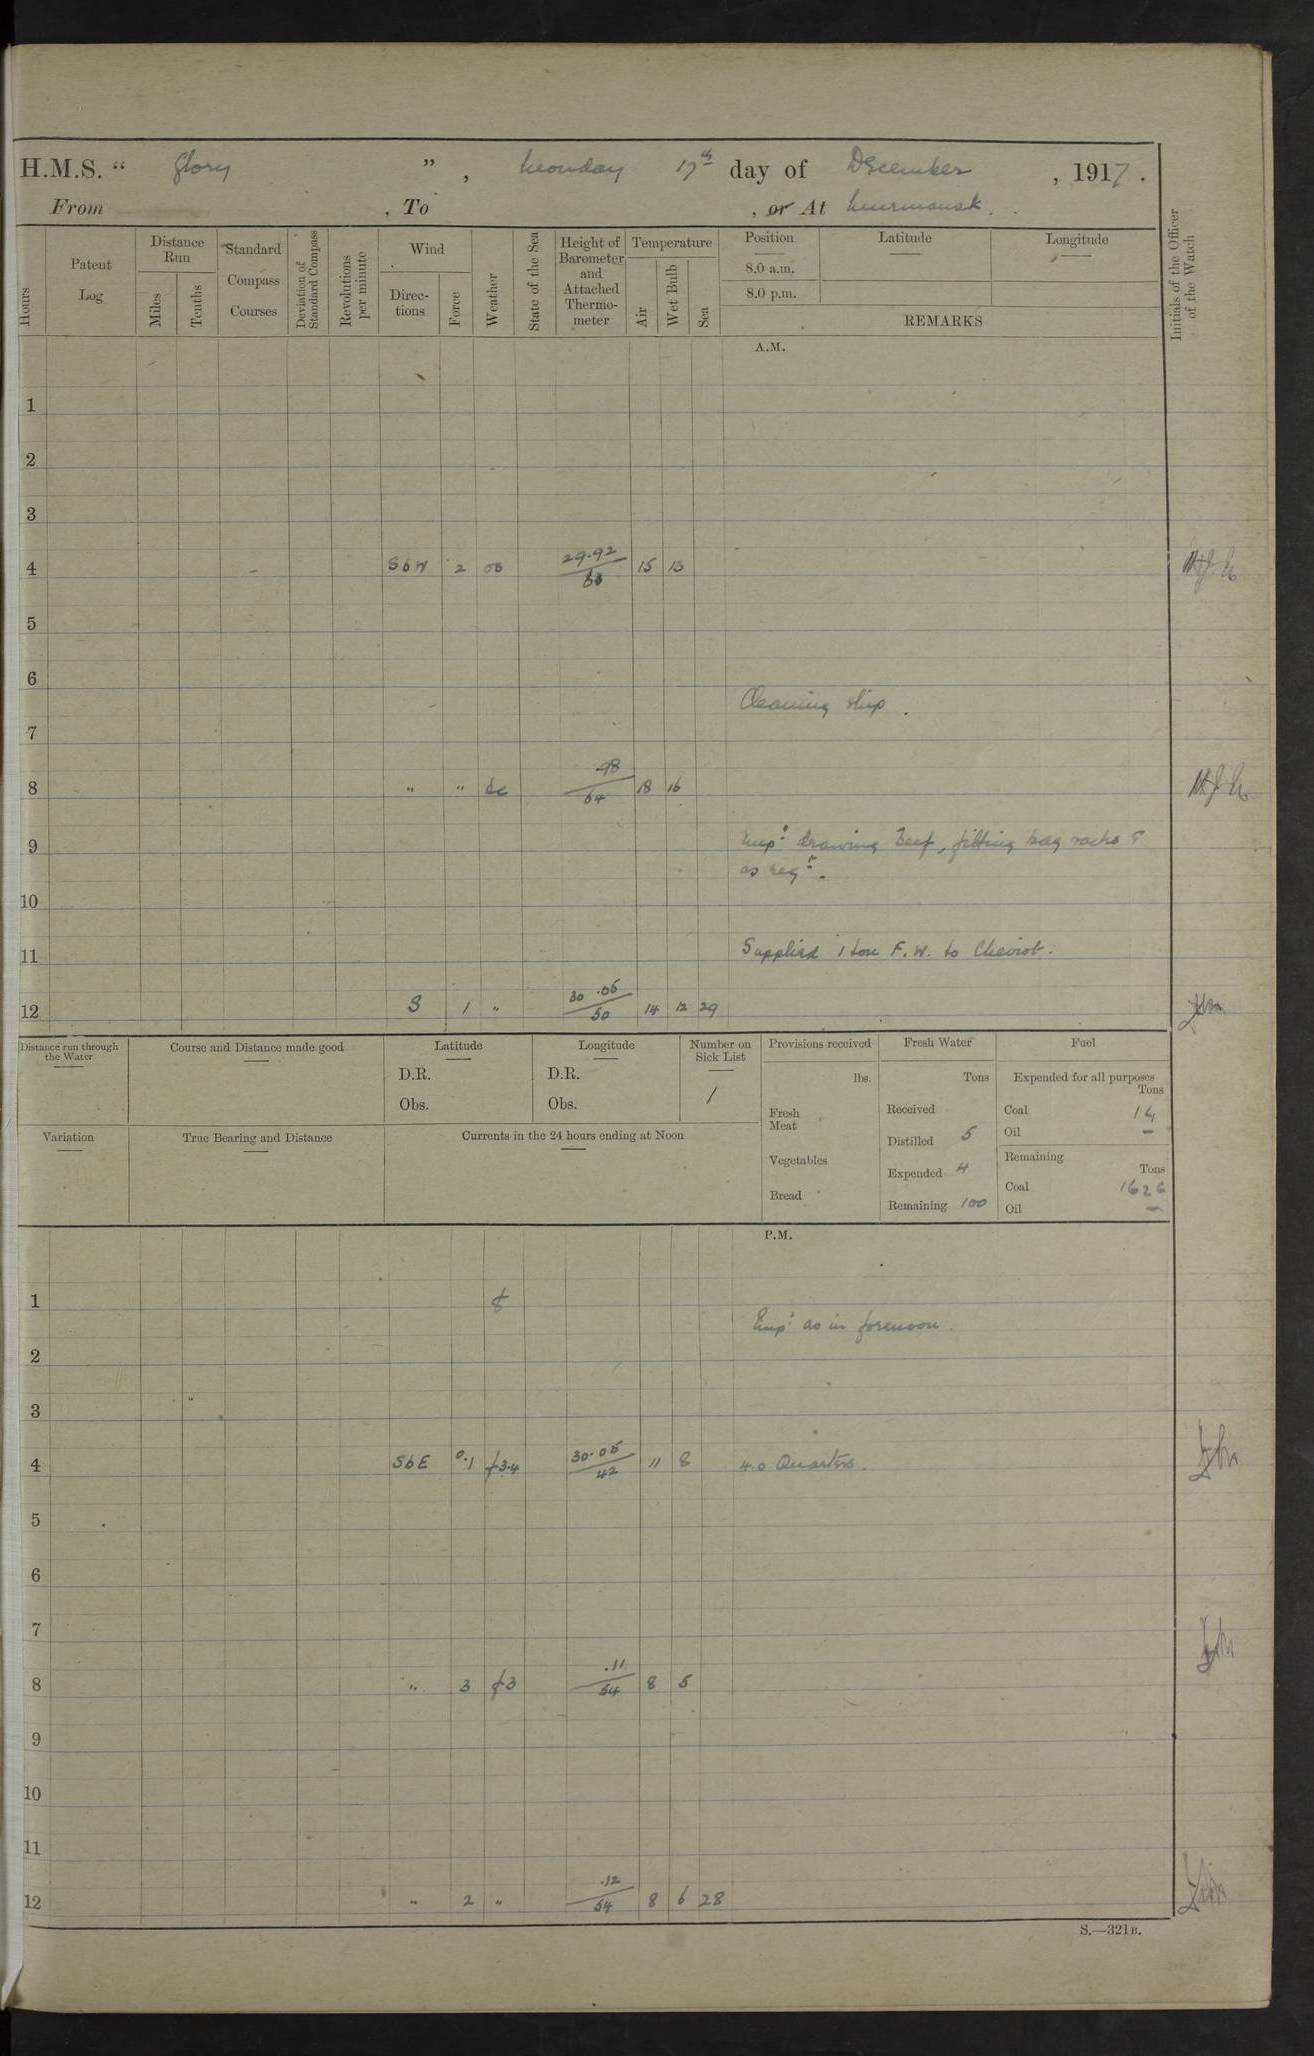 H.M.S. " Glory ", Monday 17th day of December, 1917.
From , To , or At Murmansk.
Hours
Patent Log
Distance Run
Miles
Tenths
Standard Compass Courses
Deviation of Standard Compass
Revolutions per minute
Wind
Directions
Force
Weather
State of the Sea
Height of Barometer and Attached Thermometer
Temperature
Air
Wet Bulb
Sea
Position
8.0 a.m.
8.0 p.m.
Latitude
Longitude
REMARKS
Initials of the Officer of the Watch
A.M.
1
2
3
4 SbW 2 29.92 15 13
5
6
Cleaning ship.
7
8 " " bc .98 64 18 16
9 Empd drawing beef, fitting bag racks &
as reqd.
10
11 Supplied 1 ton F.W. to Cheviot.
12 S 1 " 30.06 50 14 12 29
Distance run through the Water
Course and Distance made good
Latitude
D.R.
Obs.
Longitude
D.R.
Obs.
Number on Sick List
1
Provisions received
lbs.
Fresh Meat
Vegetables
Bread
Fresh Water
Tons
Received
Distilled 5
Expended 4
Remaining 100
Fuel
Expended for all purposes
Tons
Coal 14
Oil —
Remaining
Tons
Coal 1626
Oil —
Variation
True Bearing and Distance
Currents in the 24 hours ending at Noon
P.M.
1
Empd as in forenoon.
2
3
4 SbE 0.1 f3.4 30.05 42 11 8 4.0 Quarters.
5
6
7
8 " 3 f3 .11 54 8 5
9
10
11
12 " 2 " .12 54 8 6 28
S.—321B.